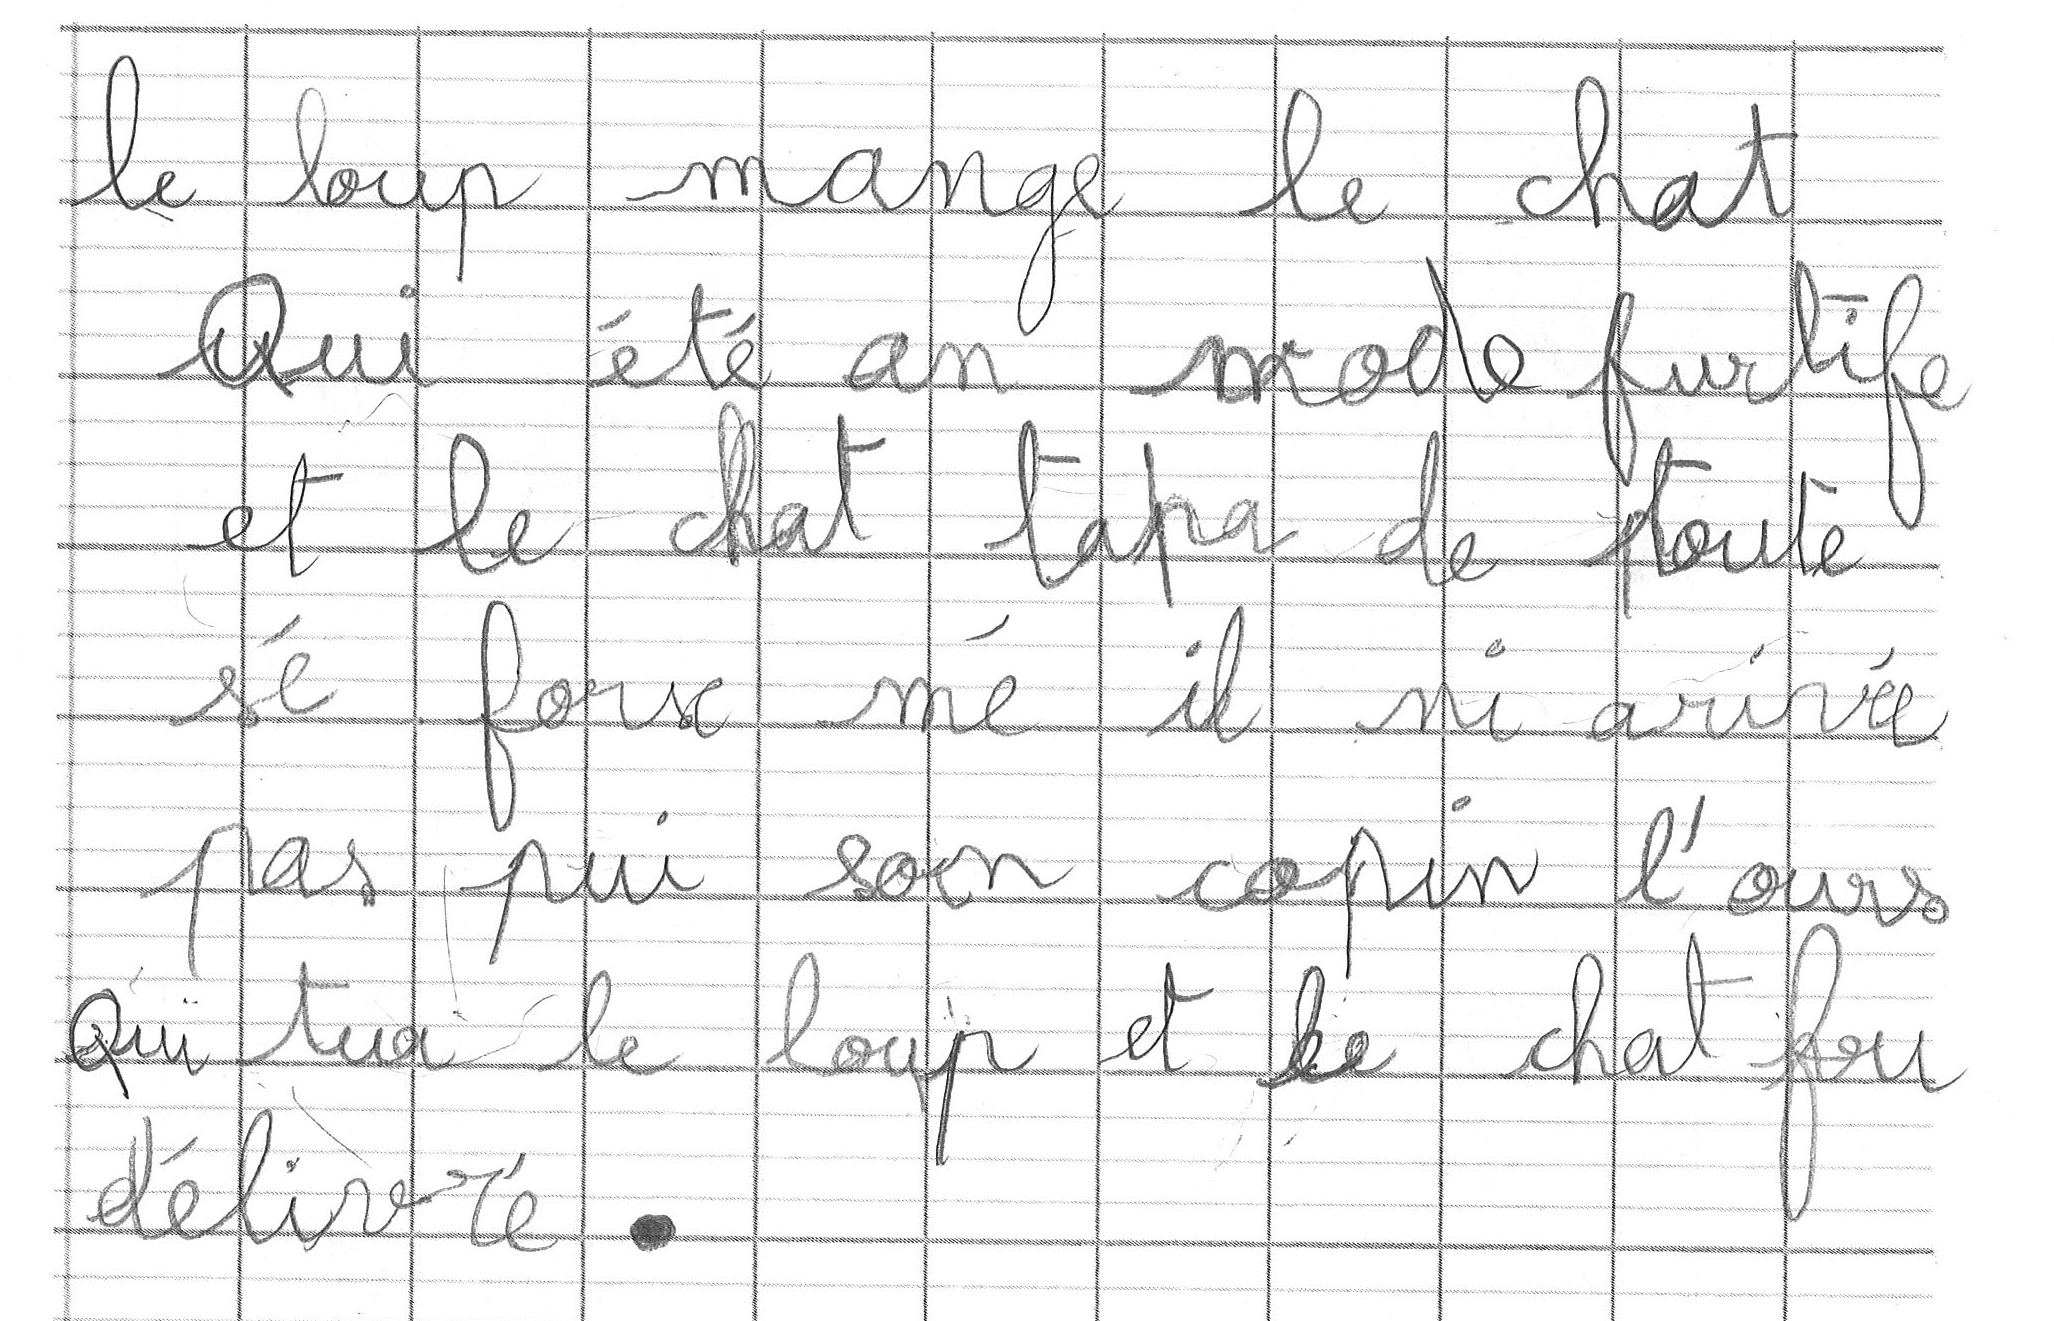 le loup mange le chat
Qui été an mode furtife
et le chat tapa de toute
sé forse mé il ni arivée
pas pui son copin l'ours
Qui tua le loup et le chat fu
délivré.